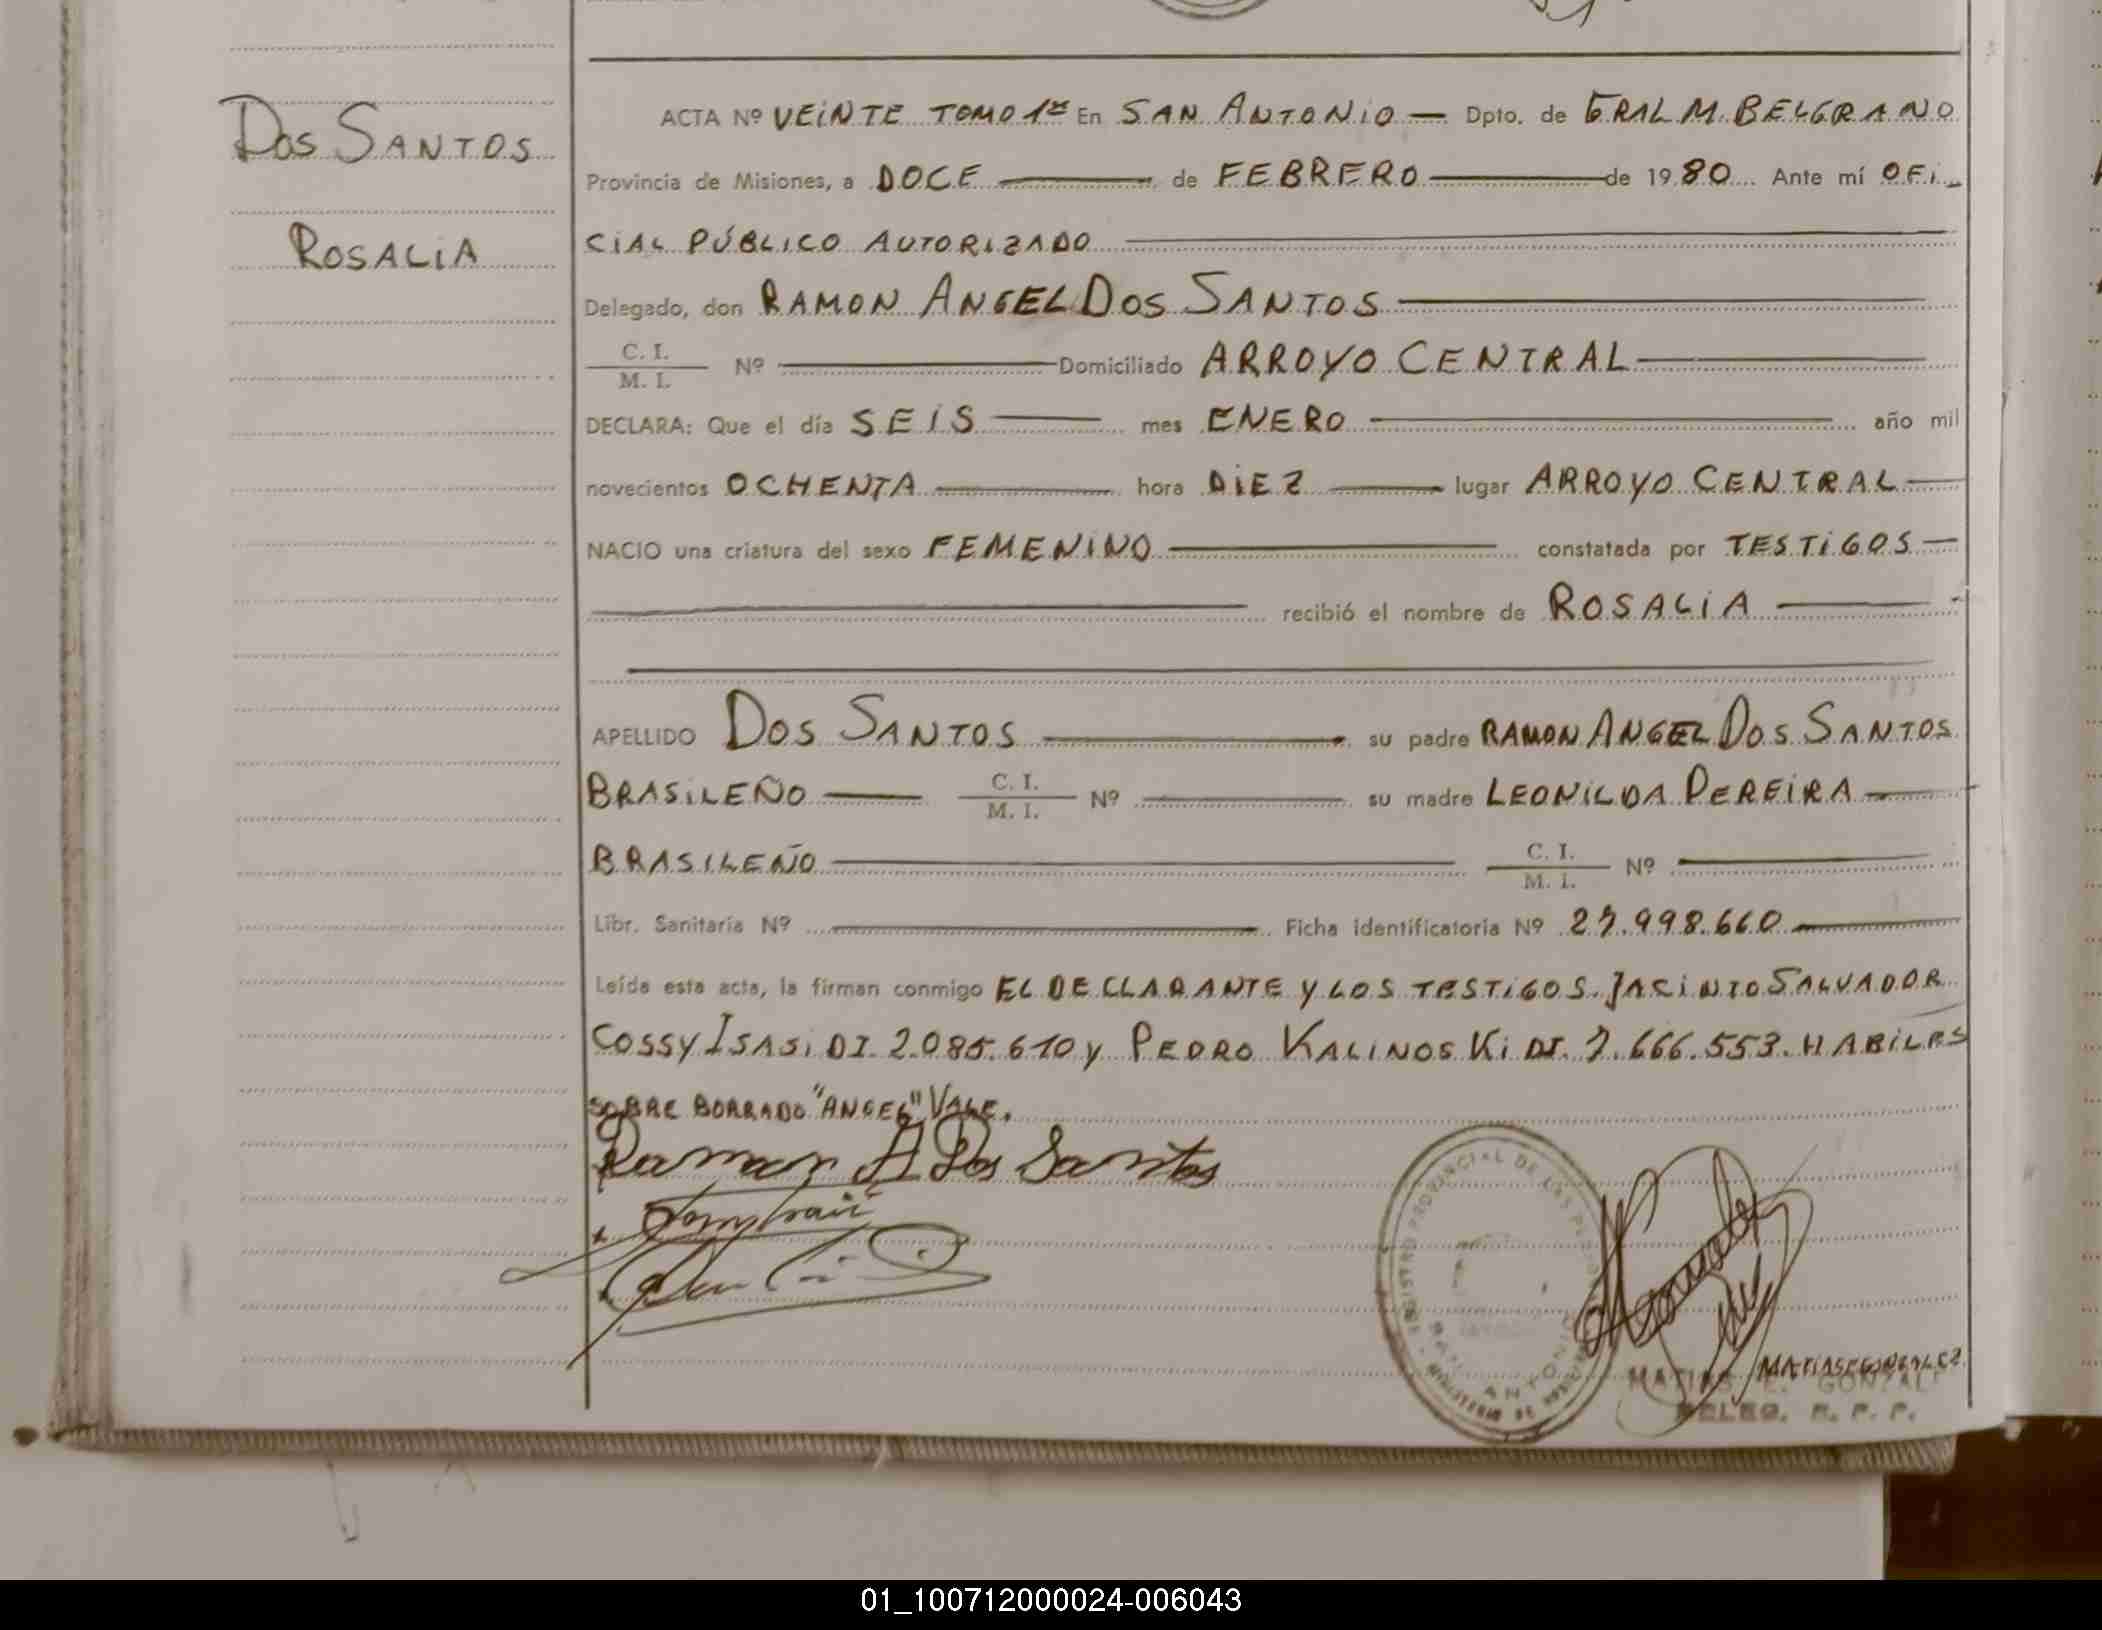 DOS SANTOS
ROSALIA
ACTA Nº VEINTE TOMO 1º En SAN ANTONIO — Dpto. de GRAL M. BELGRANO
Provincia de Misiones, a DOCE de FEBRERO de 1980 Ante mí OFI-
CIAL PÚBLICO AUTORIZADO
Delegado, don RAMON ANGEL DOS SANTOS
C. I.
M. I. Nº Domiciliado ARROYO CENTRAL
DECLARA: Que el día SEIS mes ENERO año mil
novecientos OCHENTA hora DIEZ lugar ARROYO CENTRAL
NACIO una criatura del sexo FEMENINO constatada por TESTIGOS
recibió el nombre de ROSALIA
APELLIDO DOS SANTOS su padre RAMON ANGEL DOS SANTOS
BRASILEÑO C. I.
M. I. Nº su madre LEONILDA PEREIRA
BRASILEÑO C. I.
M. I. Nº
Libr. Sanitaria Nº Ficha identificatoria Nº 27.998.660
Leída esta acta, la firman conmigo EL DECLARANTE Y LOS TESTIGOS. JACINTO SALVADOR
COSSY ISASI DI. 2.085.610 y PEDRO KALINOSKI DI. 7.666.553. HABILES
SOBRE BORRADO "ANGEL" VALE.
Ramon A Dos Santos
REGISTRO PROVINCIAL DE LAS PERSONAS
SAN ANTONIO
MINISTERIO DE
MATIAS E GONZALEZ
MATIAS E. GONZALEZ
DELEG. R. P. P.
01_100712000024-006043